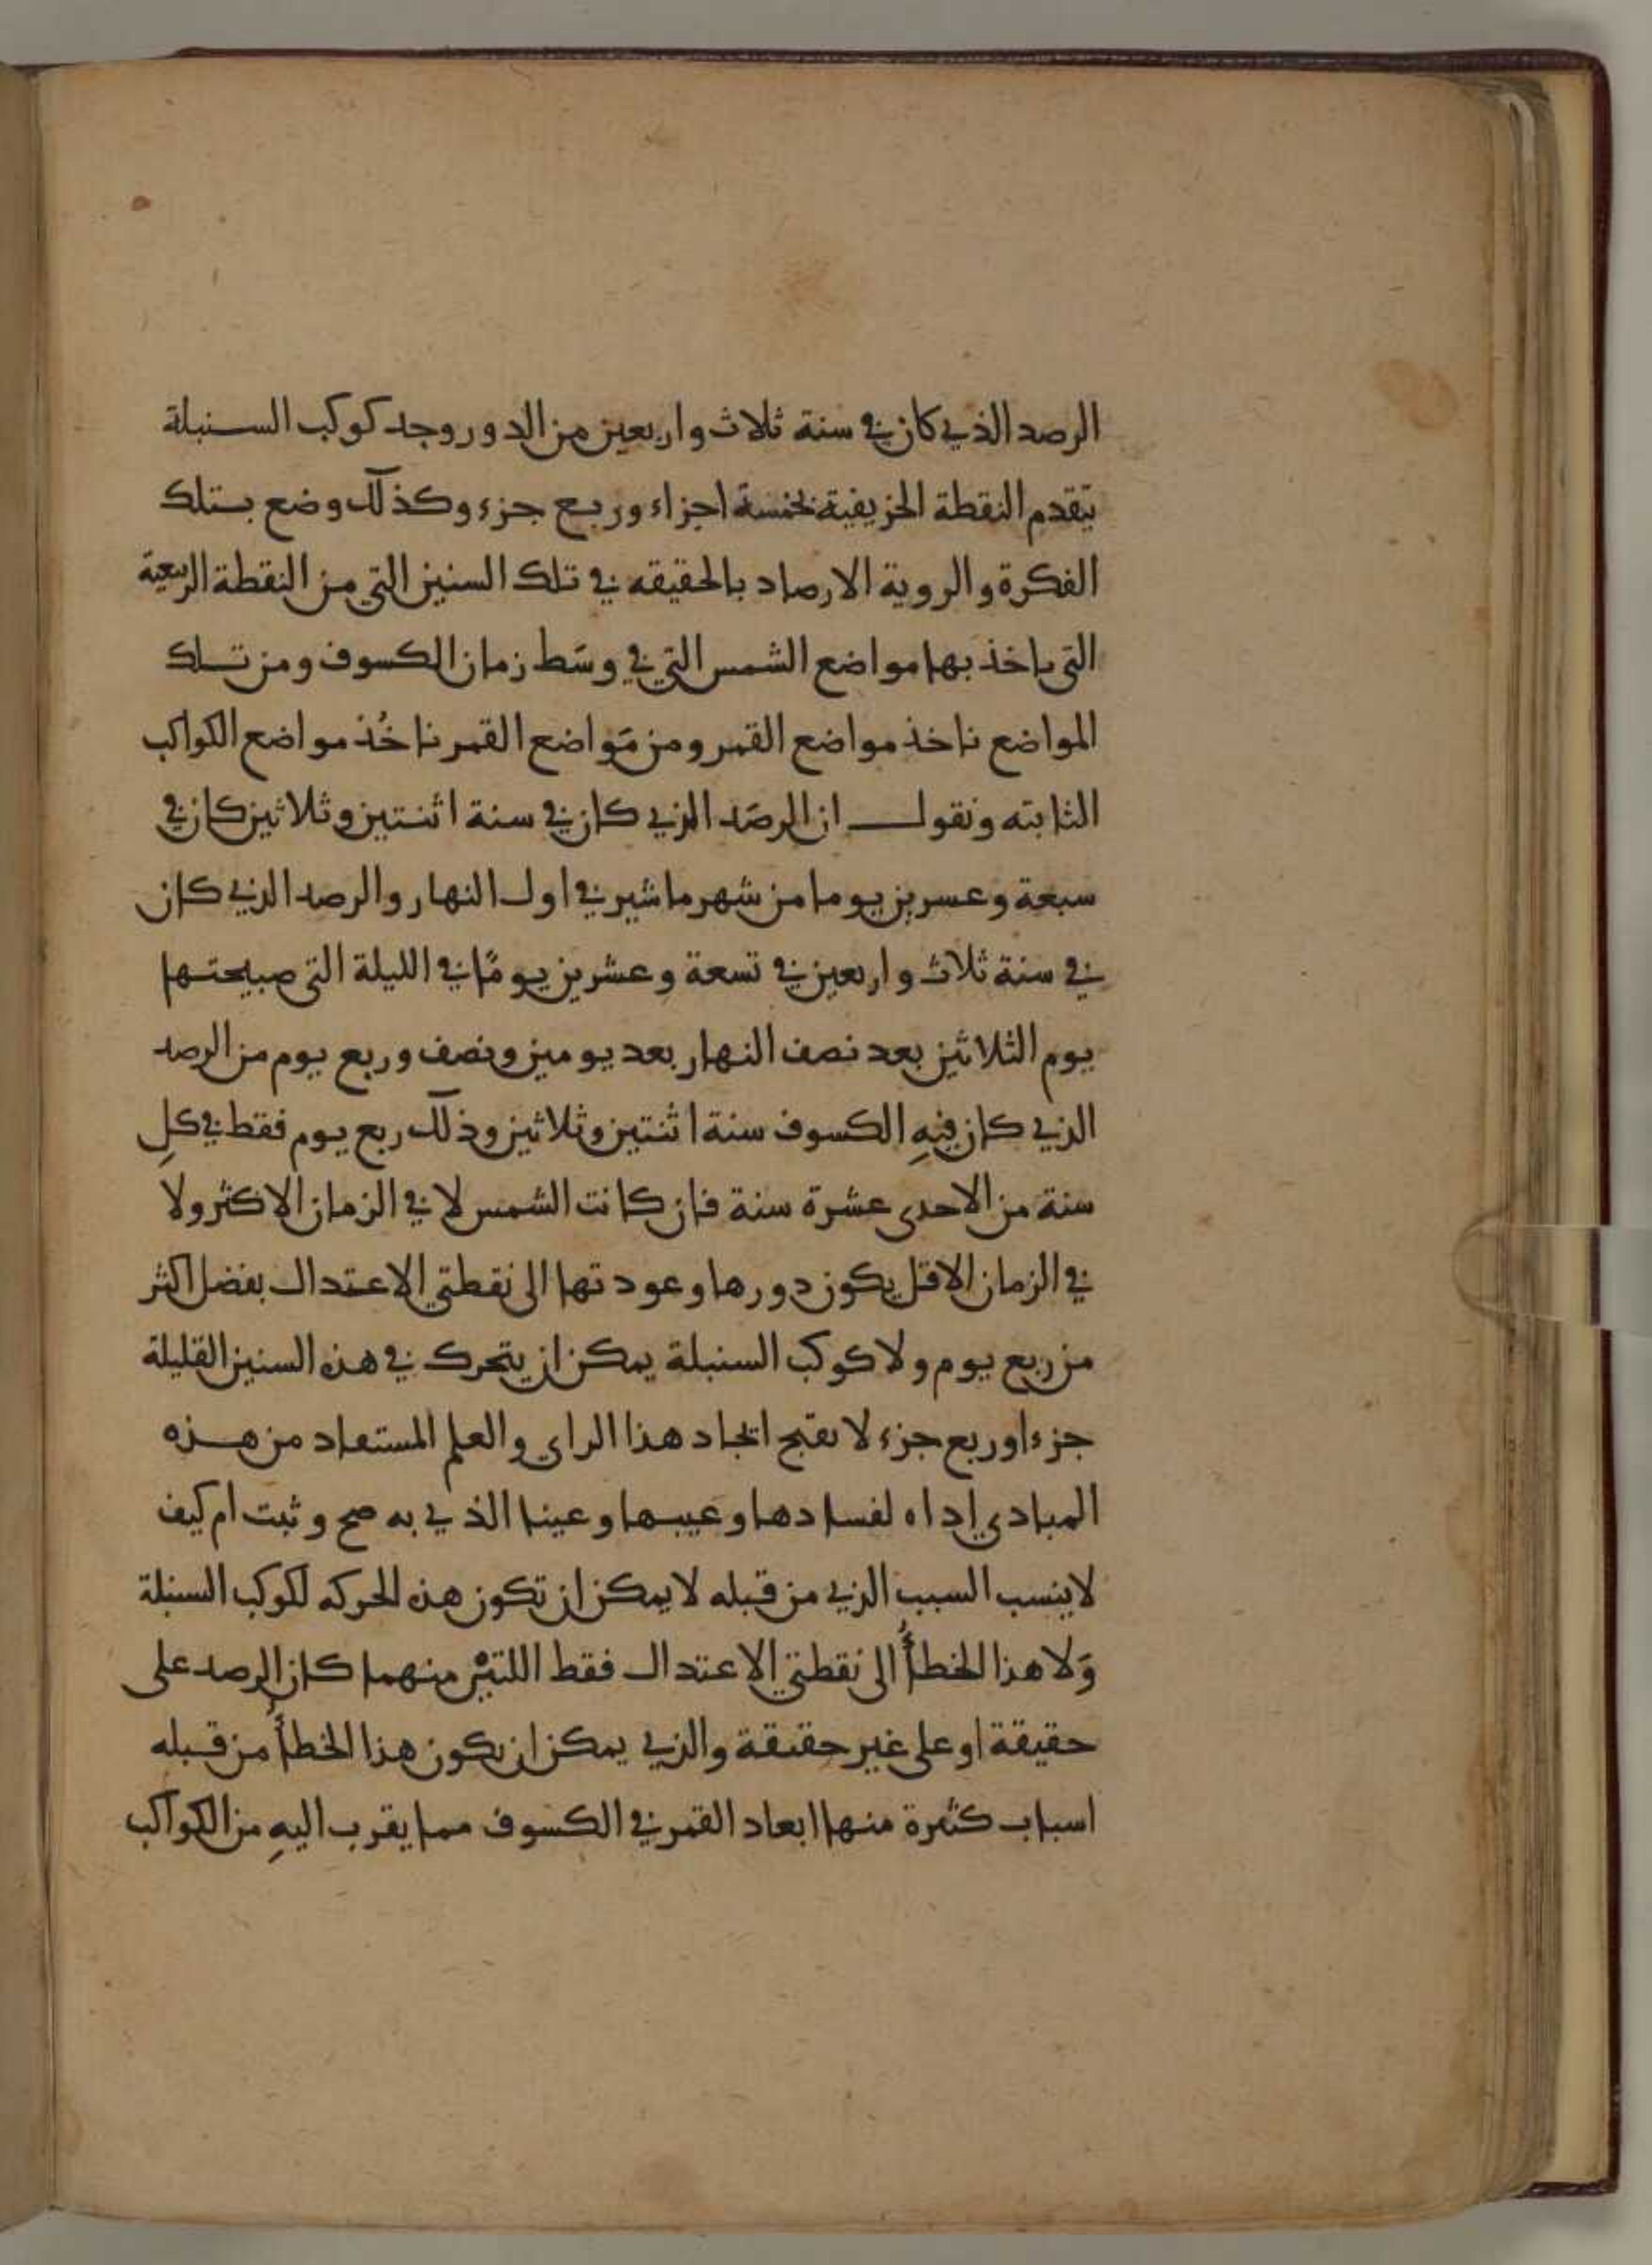 الرصد الذي كان في سنة ثلاث واربعين من الدور وجد كوكب السنبلة
يتقدم النقطة الخريفية بخمسة اجزاء وربع جزء وكذلك وضع بتلك
الفكرة والروية الارصاد بالحقيقه في تلك السنين التي من النقطة الربيعية
التي ياخذ بها مواضع الشمس التي في وسَط زمان الكسوف ومن تلك
المواضع ناخذ مواضع القمر ومن مَواضع القمر ناخُذ مواضع الكواكب
الثابته ونقول ان الرصَد الذي كان في سنة اثنتين وثلاثين كان في
سبعة وعسرين يوما من شهر ماشير في اول النهار والرصد الذي كان
في سنة ثلاث واربعين في تسعة وعشرين يومًا في الليلة التي صبيحتها
يوم الثلاثين بعد نصف النهار بعد يومين ونصف وربع يوم من الرصد
الذي كان فيهِ الكسوف سنة اثنتين وثلاثين وذلك ربع يوم فقط في كلِ
سنة من الاحدى عشرة سنة فان كانت الشمس لا في الزمان الاكثر ولا
في الزمان الاقل يكون دورها وعودتها الى نقطتي الاعتدال بفضل اكثر
من ربع يوم ولا كوكب السنبلة يمكن ان يتحرك في هذه السنين القليلة
جزءا وربع جزء لا يقبح اتخاد هذا الراي والعلم المستفاد من هذه
المبادي اداه لفسادها وعيبها وعينا الذي به صح وثبت ام كيف
لا ينسب السبب الذي من قبله لا يمكن ان تكون هذه الحركه لكوكب السنبلة
وَلا هذا الخطأُ الى نقطتي الاعتدال فقط اللتيْن منهما كان الرصد على
حقيقة او على غير حقيقة والذي يمكن ان يكون هذا الخطأُ من قبله
اسباب كثيرة منها ابعاد القمر في الكسوف مما يقرب اليهِ من الكواكب